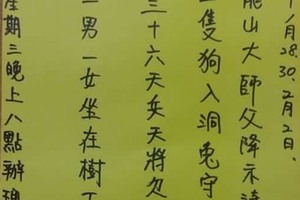 1月28.30.2月2日.
龍山大師父降示詩
一隻狗入洞兔守
三十六天兵天將欠
一男一女坐在樹下
星期三晚上八點辦理